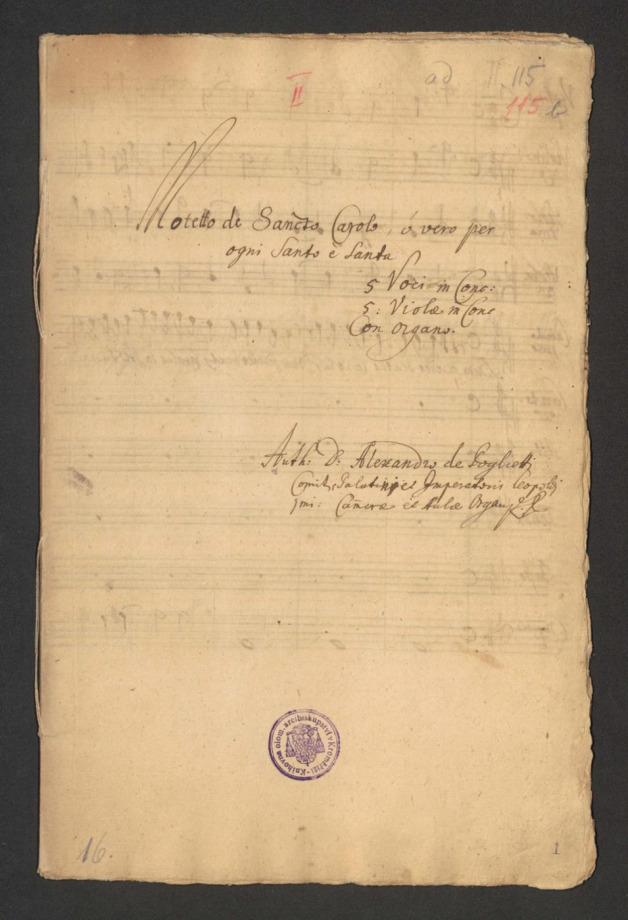 ad II 115
II
115 b
Motetto de Sancto Carolo, ó vero per
ogni Santo è Santa
5 Voci in Conc:
5: Violæ in Conc
Con organo.
Auth: D: Alexandro de Poglietti
Comit: Palatini et Imperatoris Leopoldi
Imi: Cameræ et Aulæ Organ:
Knihovna olom. arcibiskupství v Kroměříži
16.
1